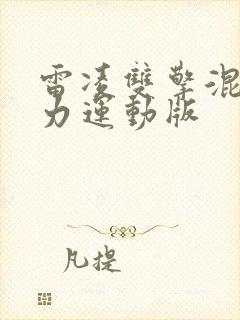 雷凌雙擎混
力運動版
凡提